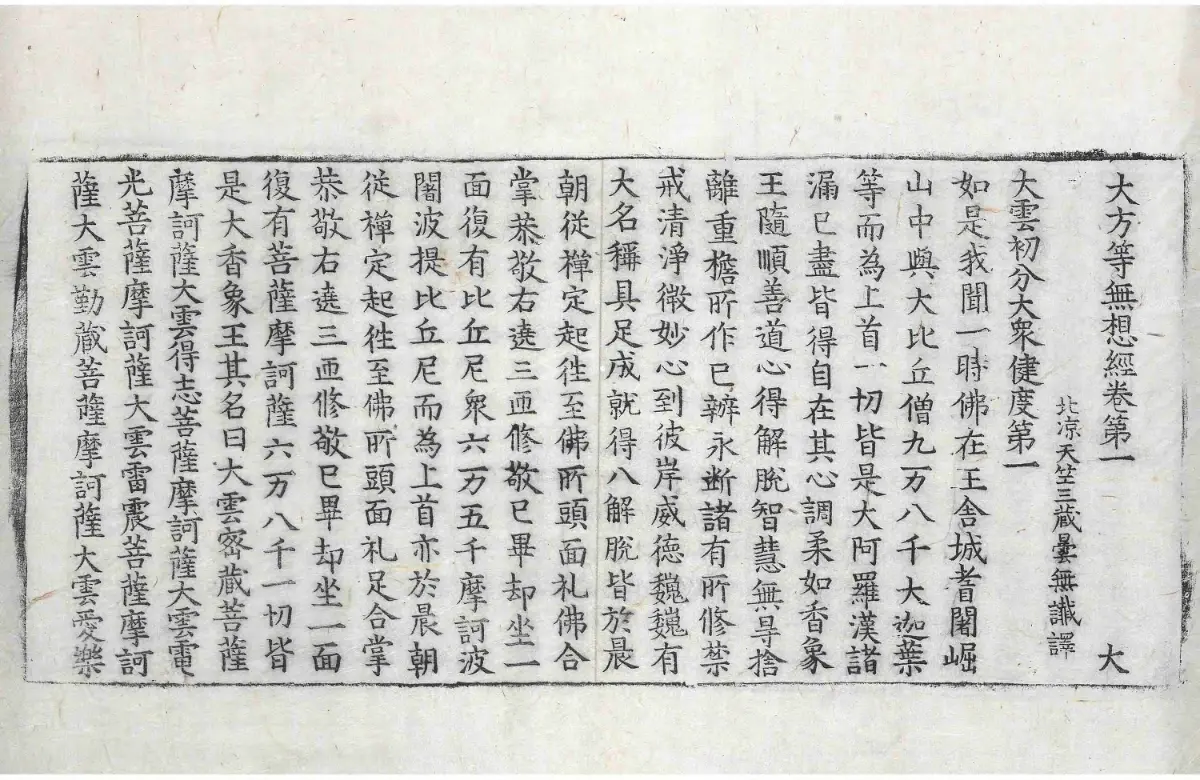 大方等無想經卷第一　大
北凉天竺三藏曇無讖譯
大雲初分大衆健度第一
如是我聞一時佛在王舍城耆闍崛
山中與大比丘僧九万八千大迦葉
等而為上首一切皆是大阿羅漢諸
漏已盡皆得自在其心調柔如香象
王隨順善道心得解脫智慧無㝵捨
離重檐所作已辦永斷諸有所修禁
戒清淨微妙心到彼岸威德巍巍有
大名稱具足成就得八解脫皆於晨
朝從禪定起徃至佛所頭面礼佛合
掌恭敬右遶三匝修敬已畢却坐一
面復有比丘尼衆六万五千摩訶波
闍波提比丘尼而為上首亦於晨朝
從禪定起徃至佛所頭面礼足合掌
恭敬右遶三匝修敬已畢却坐一面
復有菩薩摩訶薩六万八千一切皆
是大香象王其名曰大雲密藏菩薩
摩訶薩大雲得志菩薩摩訶薩大雲電
光菩薩摩訶薩大雲雷震菩薩摩訶
薩大雲勤藏菩薩摩訶薩大雲愛樂